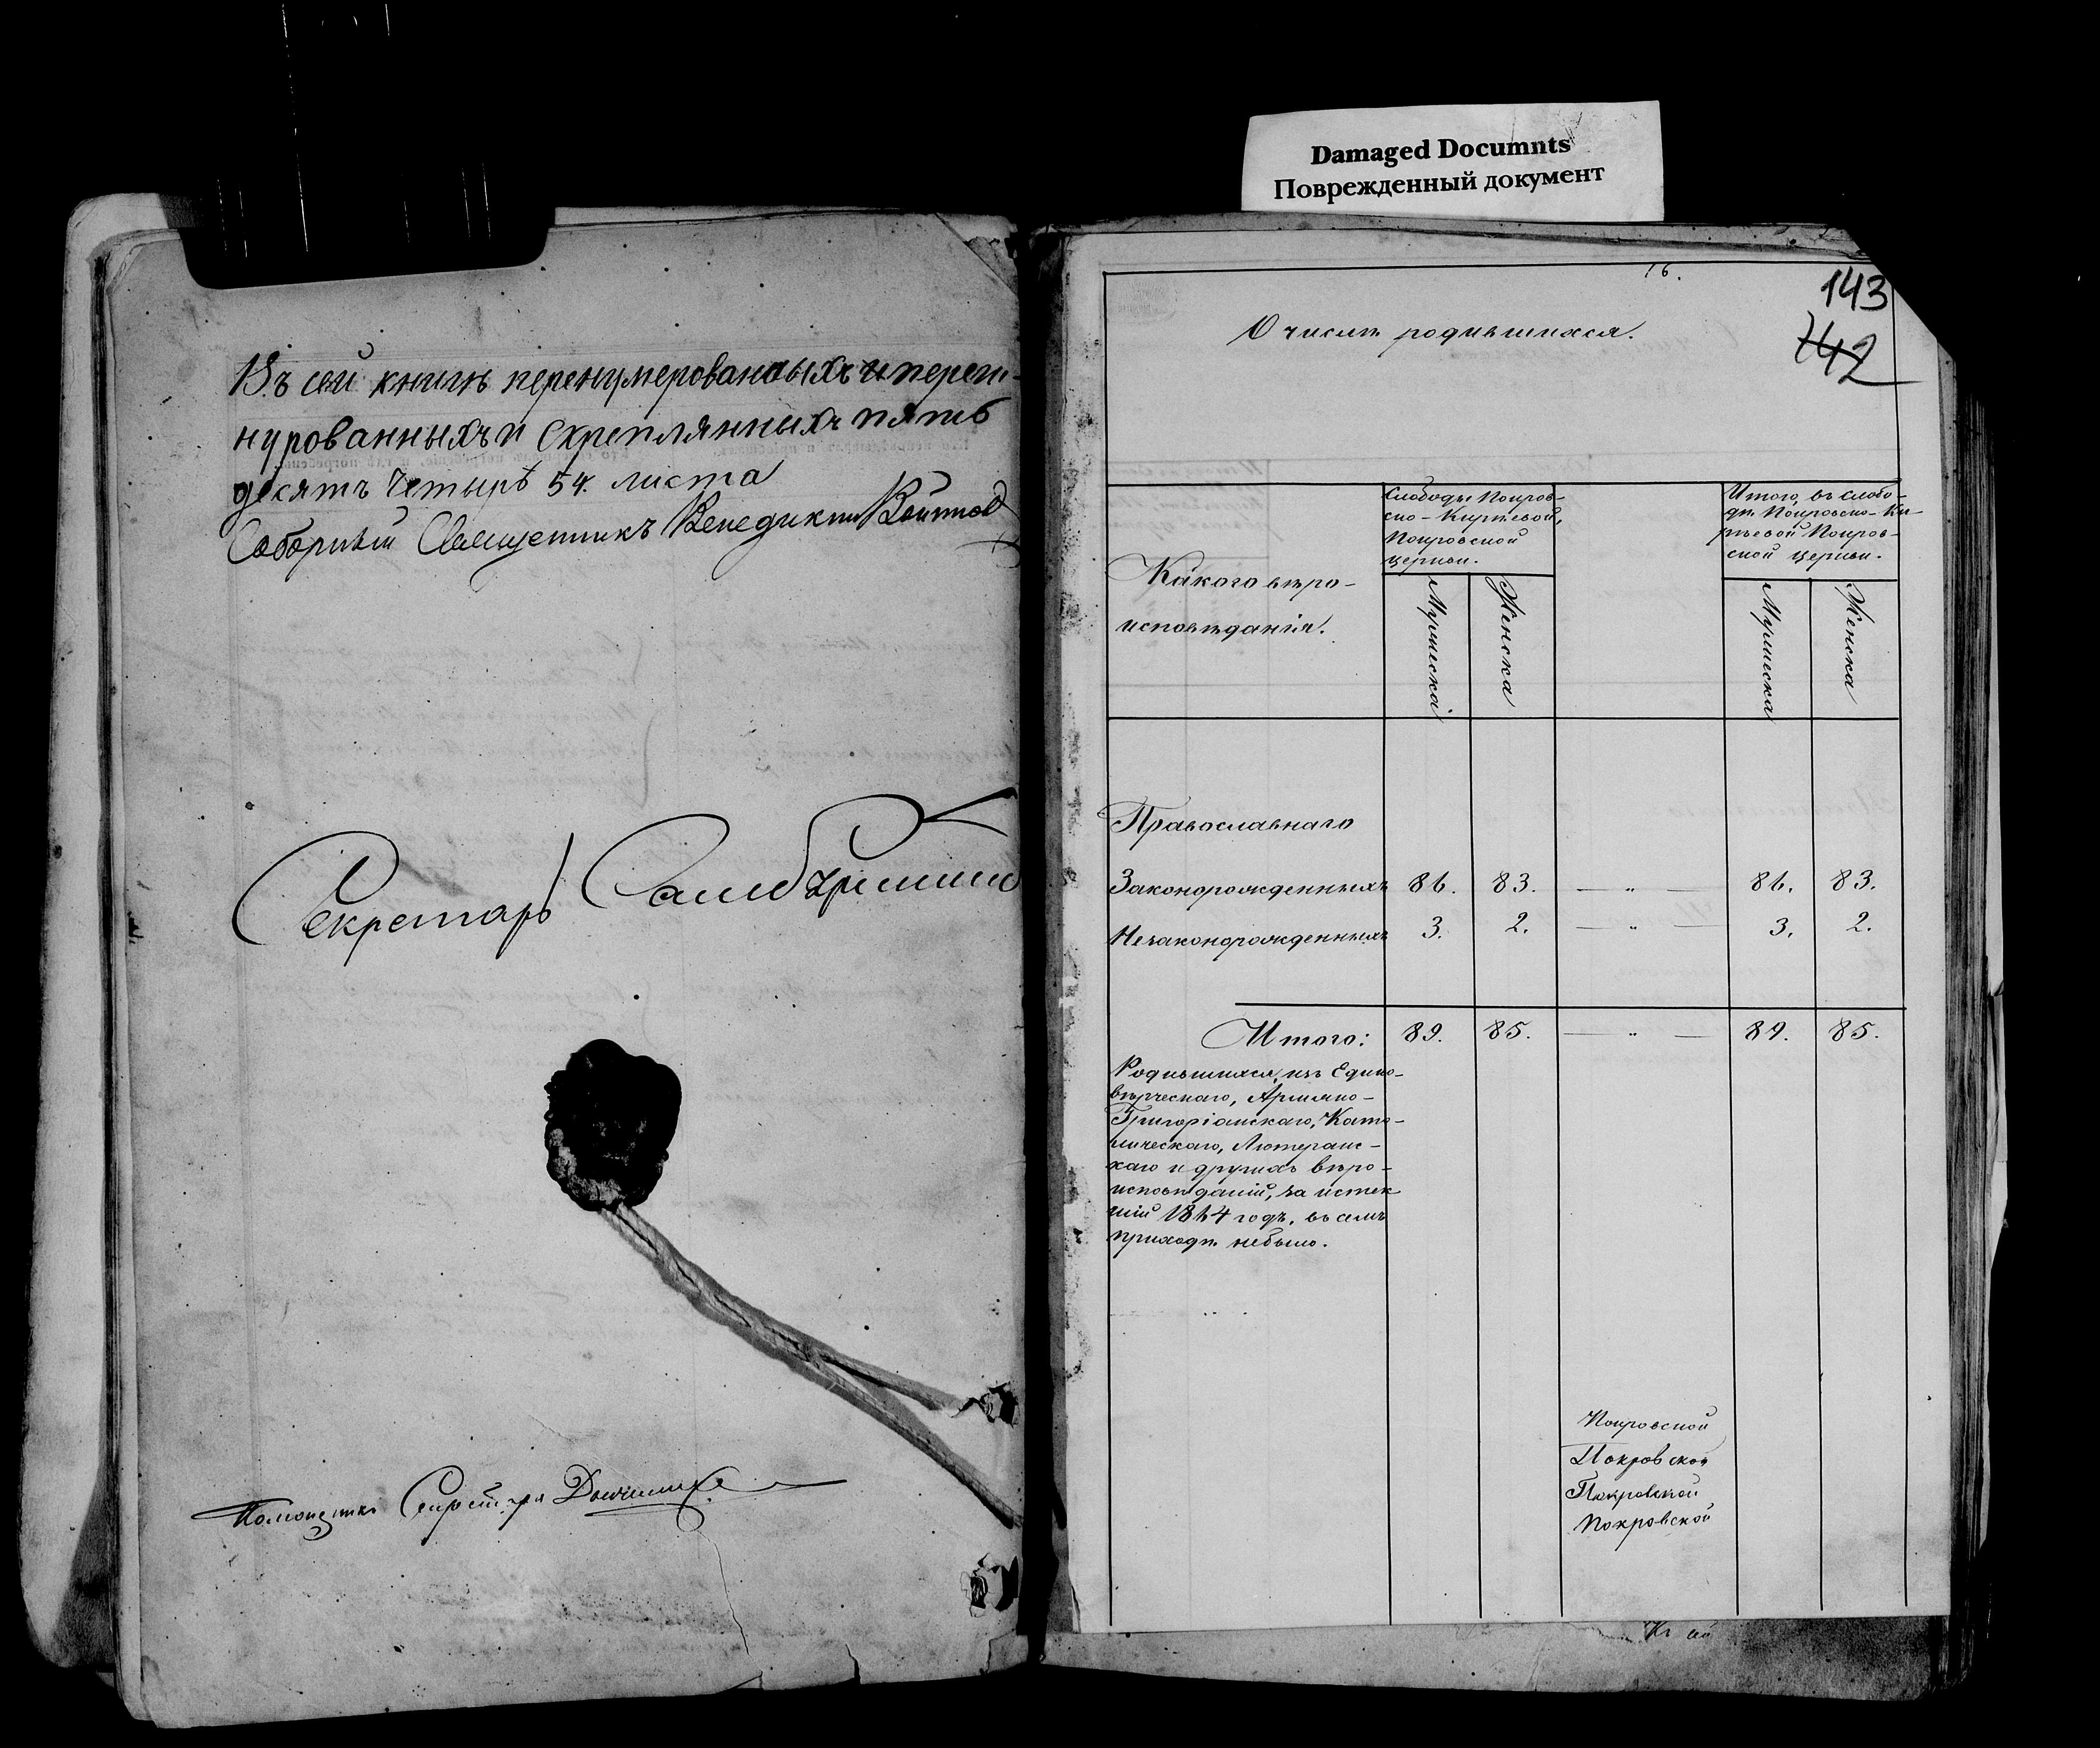 Damaged Documnts
Поврежденный документ
Въ сей книгѣ перенумерованныхъ и переш-
нурованныхъ и скреплянныхъ пять
десятъ четырѣ 54. листа
Соборный Священникъ Венедиктъ
Секретарь
Помощникъ Секретаря
16.
143
142
О числѣ родившихся.
Какого вѣро-
исповѣданія.
Слободы Покров-
ско-Кирѣевой,
Покровской
церкви.
Мужеска
Женска
Итого, въ слобо-
дѣ Покровско-Ки-
рѣевой Покров-
ской церкви.
Мужеска
Женска
Православнаго
Законорожденныхъ 86. 83. — „ — 86. 83.
Незаконорожденныхъ 3. 2. — „ — 3. 2.
Итого: 89. 85. — „ — 89. 85.
Родившихся, изъ Едино-
вѣрческаго, Армяно-
Григоріанскаго, Като-
лическаго, Лютеранс-
каго и другихъ вѣро-
исповѣданій, за истек
шій 1864 годъ, въ семъ
приходѣ небыло.
Покровской
Покровской
Покровской
Покровской